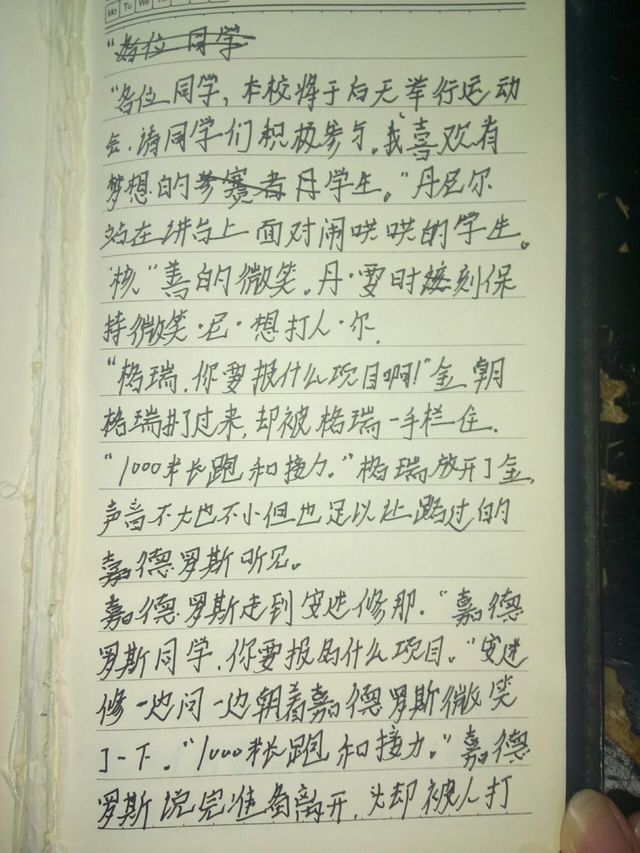 Mo Tu We
"各位同学
"各位同学,本校将于后天举行运动
会,请同学们积极参与。我喜欢有
梦想的参赛者丹学生。"丹尼尔
站在讲台上面对闹哄哄的学生。
'核"善的微笑。丹·要时刻保
持微笑·尼·想打人·尔.
"格瑞,你要报什么项目啊!"金朝
格瑞扑了过来,却被格瑞一手栏住.
"1000米长跑和接力。"格瑞放开了金,
声音不大也不小但也足以让路过的
嘉德罗斯听见。
嘉德罗斯走到安迷修那。"嘉德
罗斯同学,你要报的什么项目。"安迷
修一边问一边朝着嘉德罗斯微笑
了一下。"1000米长跑和接力。"嘉德
罗斯说完准备离开,头却被人打